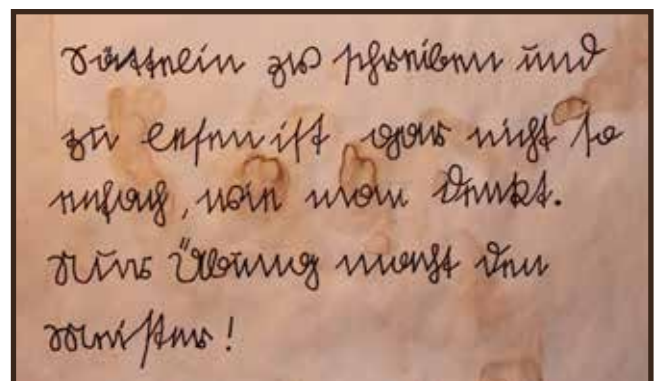 Süttelin zu schreiben und
zu lesen ist gar nicht so
einfach, wie man denkt.
Nur Übung macht den
Meister!